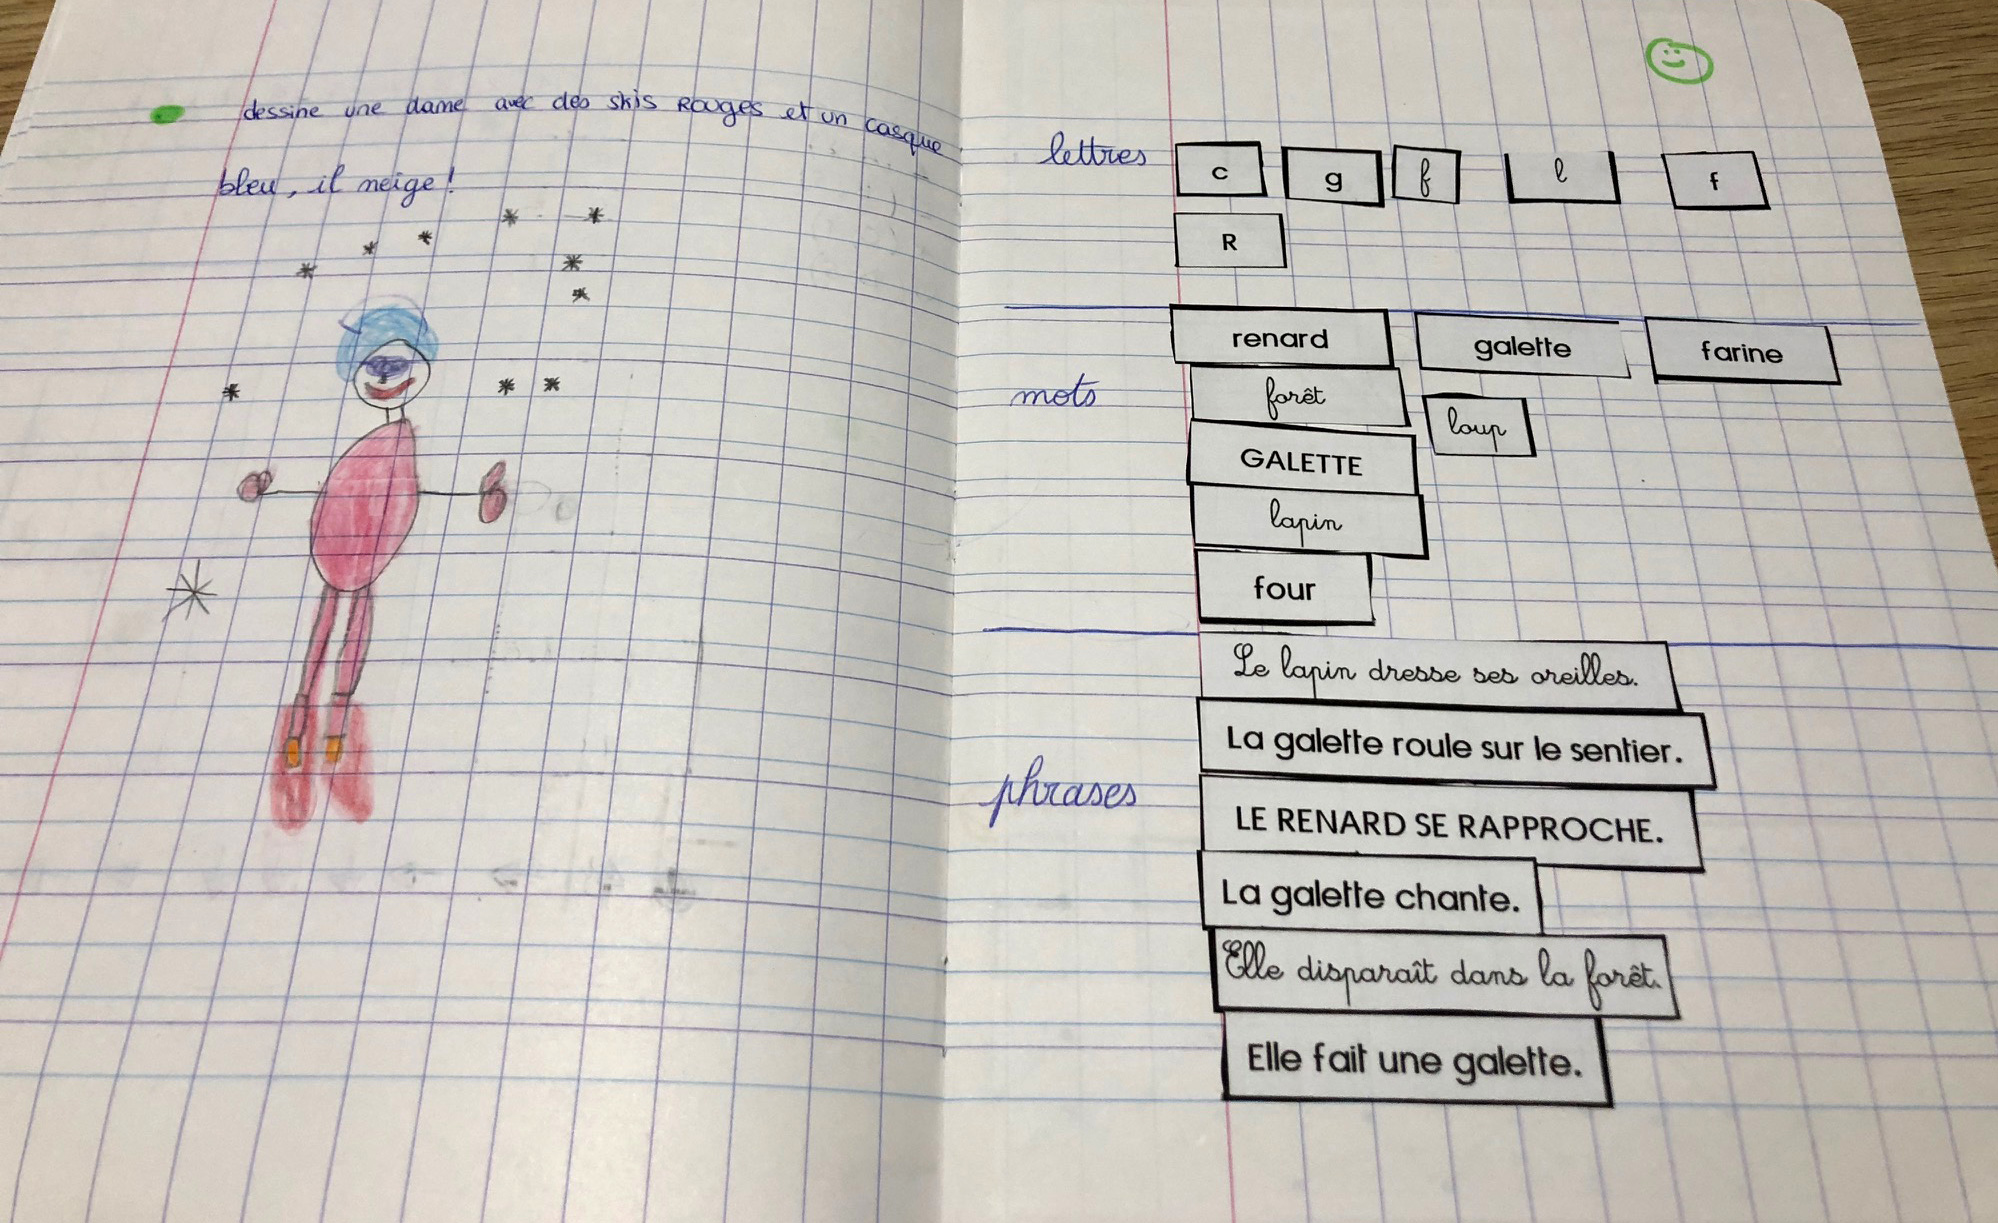 dessine une dame avec des skis Rouges et un casque
bleu, il neige !
lettres
c g f l f
R
mots
renard galette farine
forêt loup
GALETTE
lapin
four
phrases
Le lapin dresse ses oreilles.
La galette roule sur le sentier.
LE RENARD SE RAPPROCHE.
La galette chante.
Elle disparaît dans la forêt.
Elle fait une galette.